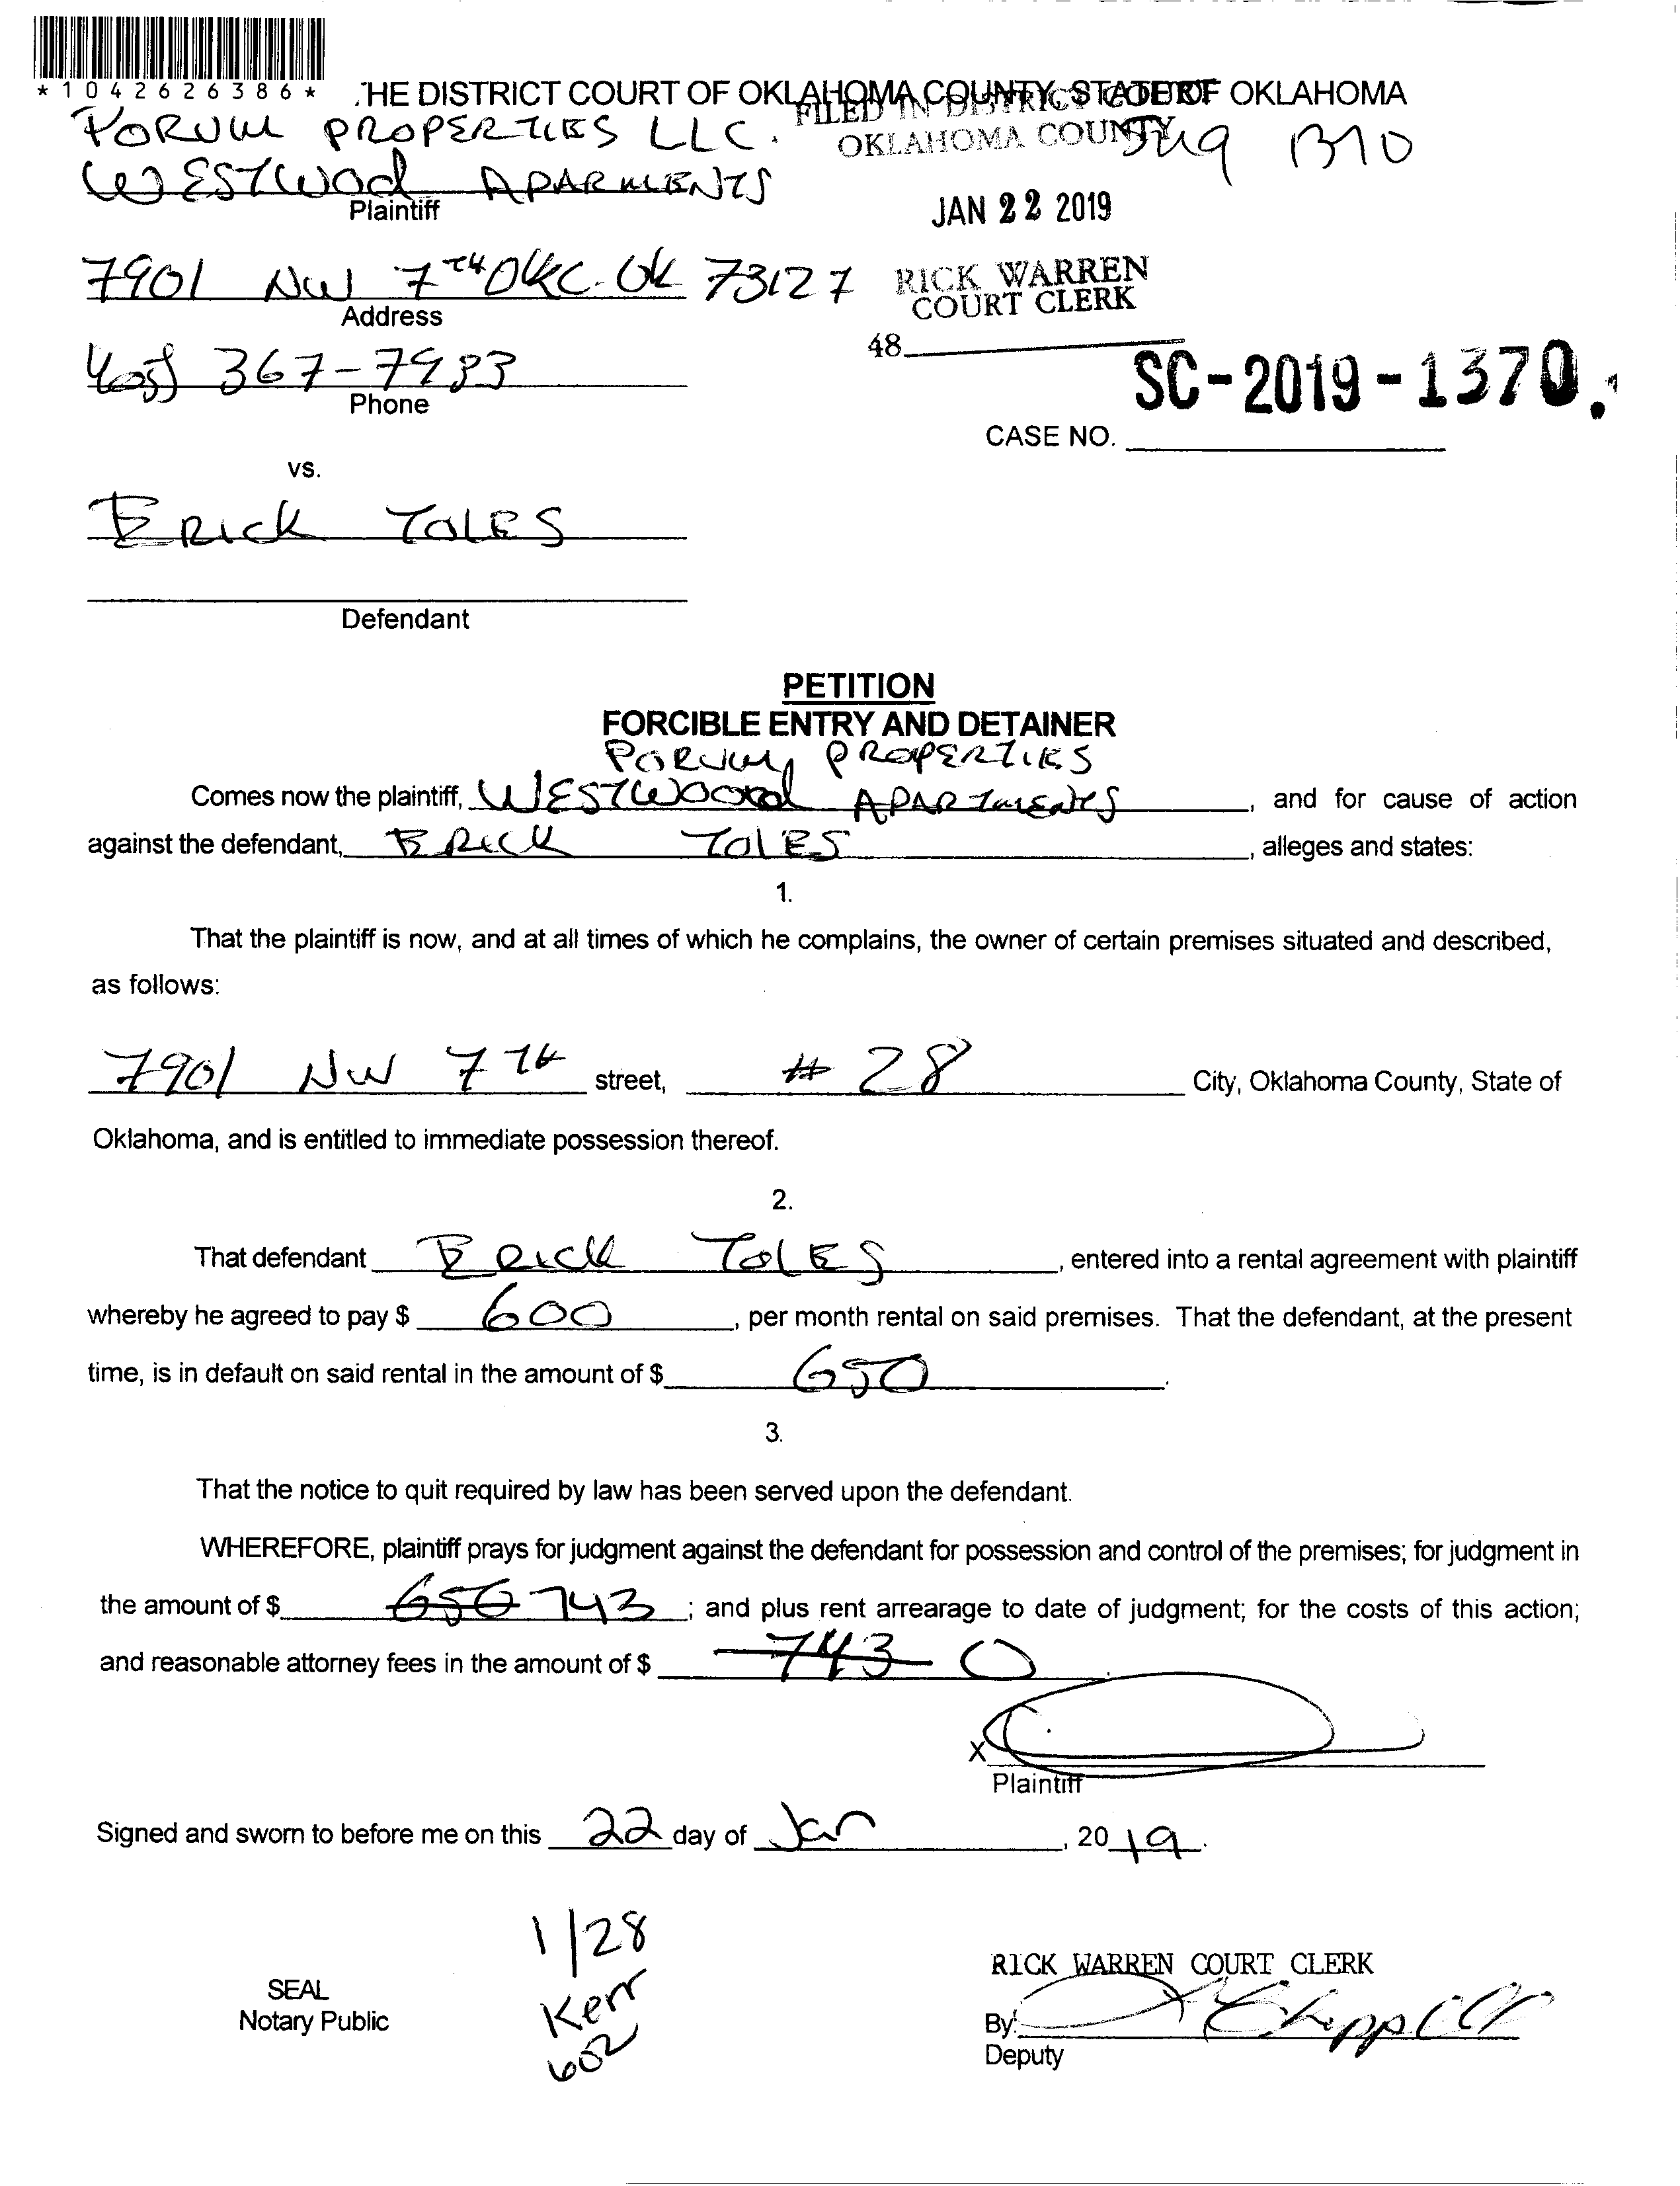 *1042626386*
THE DISTRICT COURT OF OKLAHOMA COUNTY, STATE OF OKLAHOMA
FILED IN DISTRICT COURT
OKLAHOMA COUNTY
PORUM PROPERTIES LLC.
WESTWOOD APARMENTS
Plaintiff
JAN 22 2019
7901 NW 7TH OKC. OK 73127
Address
RICK WARREN
COURT CLERK
48
(405) 367-7933
Phone
SC-2019-1370
CASE NO.
vs.
ERICK TOLES
Defendant
PETITION
FORCIBLE ENTRY AND DETAINER
PORUM PROPERTIES
Comes now the plaintiff, WESTWOOD APARTMENTS, and for cause of action
against the defendant, ERICK TOLES, alleges and states:
1.
That the plaintiff is now, and at all times of which he complains, the owner of certain premises situated and described,
as follows:
7901 NW 7TH street, # 28 City, Oklahoma County, State of
Oklahoma, and is entitled to immediate possession thereof.
2.
That defendant ERICK TOLES, entered into a rental agreement with plaintiff
whereby he agreed to pay $ 600, per month rental on said premises. That the defendant, at the present
time, is in default on said rental in the amount of $ 650.
3.
That the notice to quit required by law has been served upon the defendant.
WHEREFORE, plaintiff prays for judgment against the defendant for possession and control of the premises; for judgment in
the amount of $ 650 743; and plus rent arrearage to date of judgment; for the costs of this action;
and reasonable attorney fees in the amount of $ 743 0
X
Plaintiff
Signed and sworn to before me on this 22 day of Jan, 20 19.
1/28
Kerr
602
SEAL
Notary Public
RICK WARREN COURT CLERK
By:
Deputy